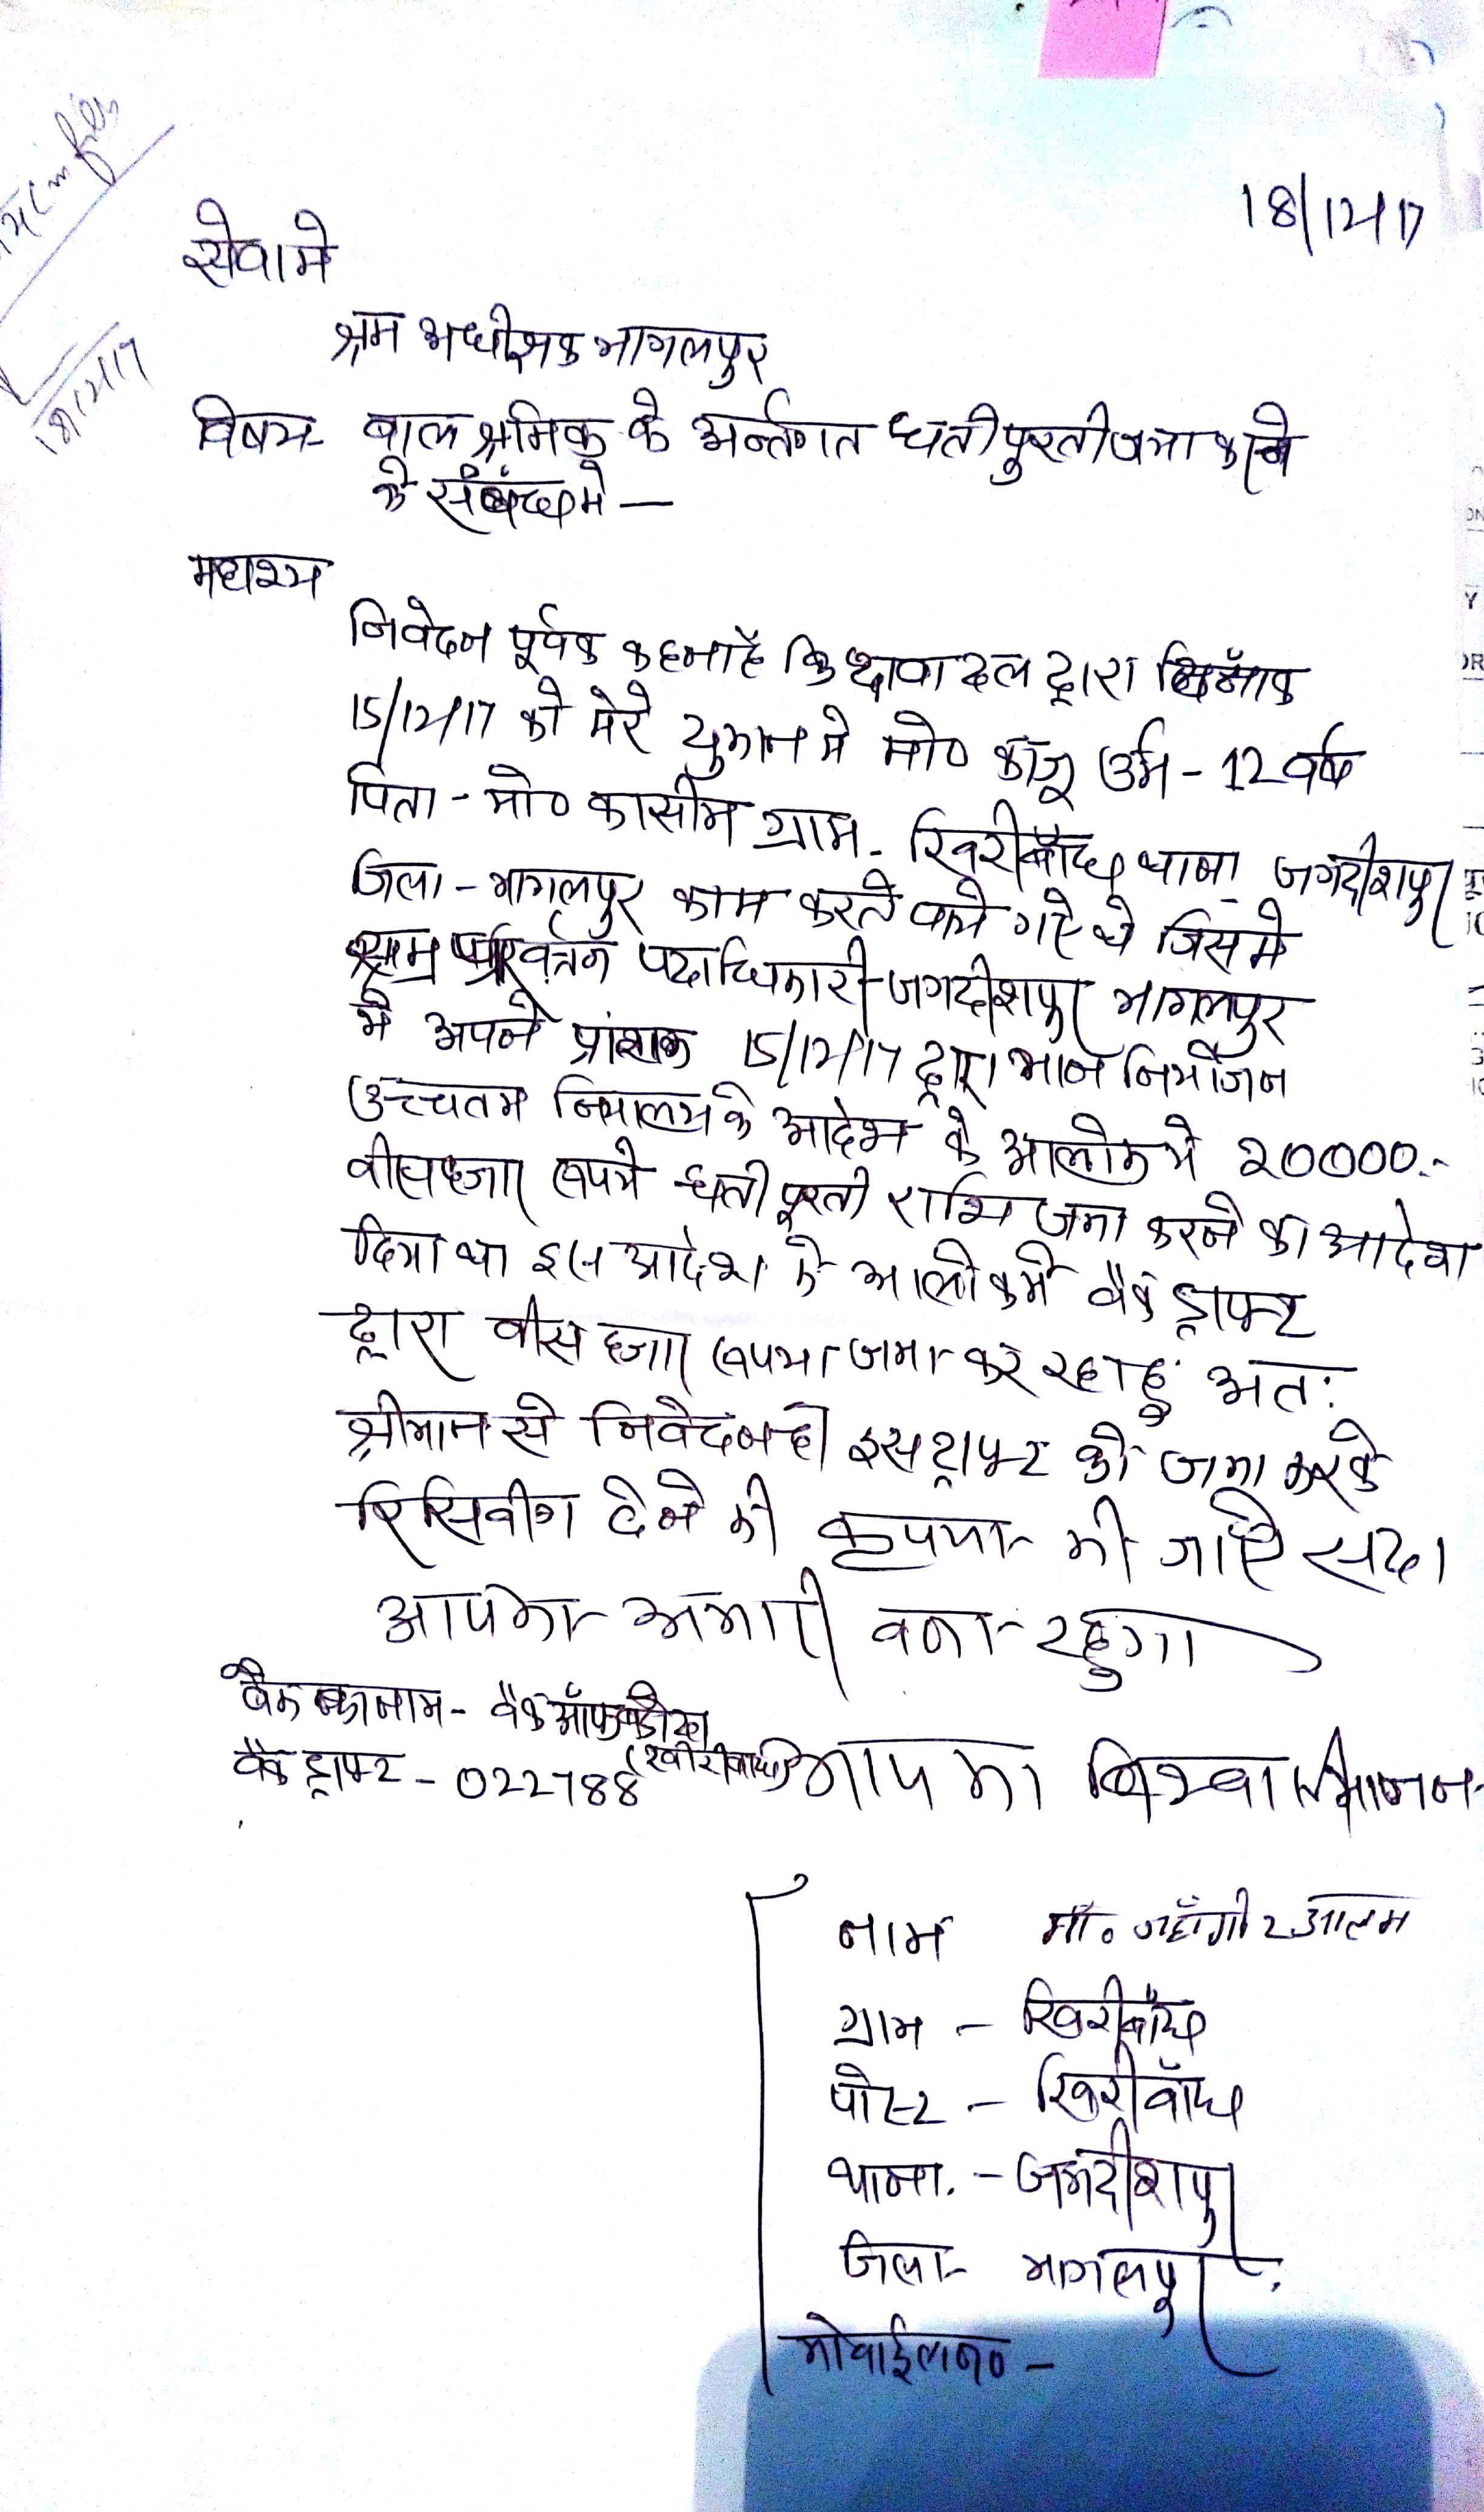 18/12/17
सेवा मे
श्रम अधीक्षक भागलपुर
विषय- बाल श्रमिक के अर्न्तगत छती पुरती जमा करने
के संबंध मे —
महाश्य
निवेदन पूर्वक कहना है कि धावा दल द्वारा दिनाँक
15/12/17 को मेरे दुकान मे मो० काजू उर्म - 12 वर्ष
पिता - मो० कासीम ग्राम - खिरीबाँध थाना - जगदीशपुर
जिला - भागलपुर काम करते पाये गऐ थे जिसमे
श्रम प्रर्वत्तन पदाधिकारी जगदीशपुर भागलपुर
मे अपने 15/12/17 द्वारा नियोजन
उच्चतम न्यालय के आदेश के आलोक मे 20000.-
वीस हजार रूपये छती पुरती राशि जमा करने का आदेश
दिया था इस आदेश के आलोक मे बैंक ड्राफ्ट
द्वारा वीस हजार रूपया जमा कर रहा हुं अतः
श्रीमान से निवेदन है इस ड्राफ्ट को जमा करके
रिसिवीग देने की कृपया की जाऐ सदा
आपका अभारी बना रहुगा
बैंक का नाम - बैंक ऑफ बड़ौदा
(खीरीबांध)
बैंक ड्राफ्ट - 022788
आप का विश्वासभाजन
नाम मो० जहाँगीर आलम
ग्राम - खिरीबाँध
पोस्ट - खिरीबाँध
थाना. - जगदीशपुर
जिला - भागलपुर
मोवाईल न० -
18/12/17